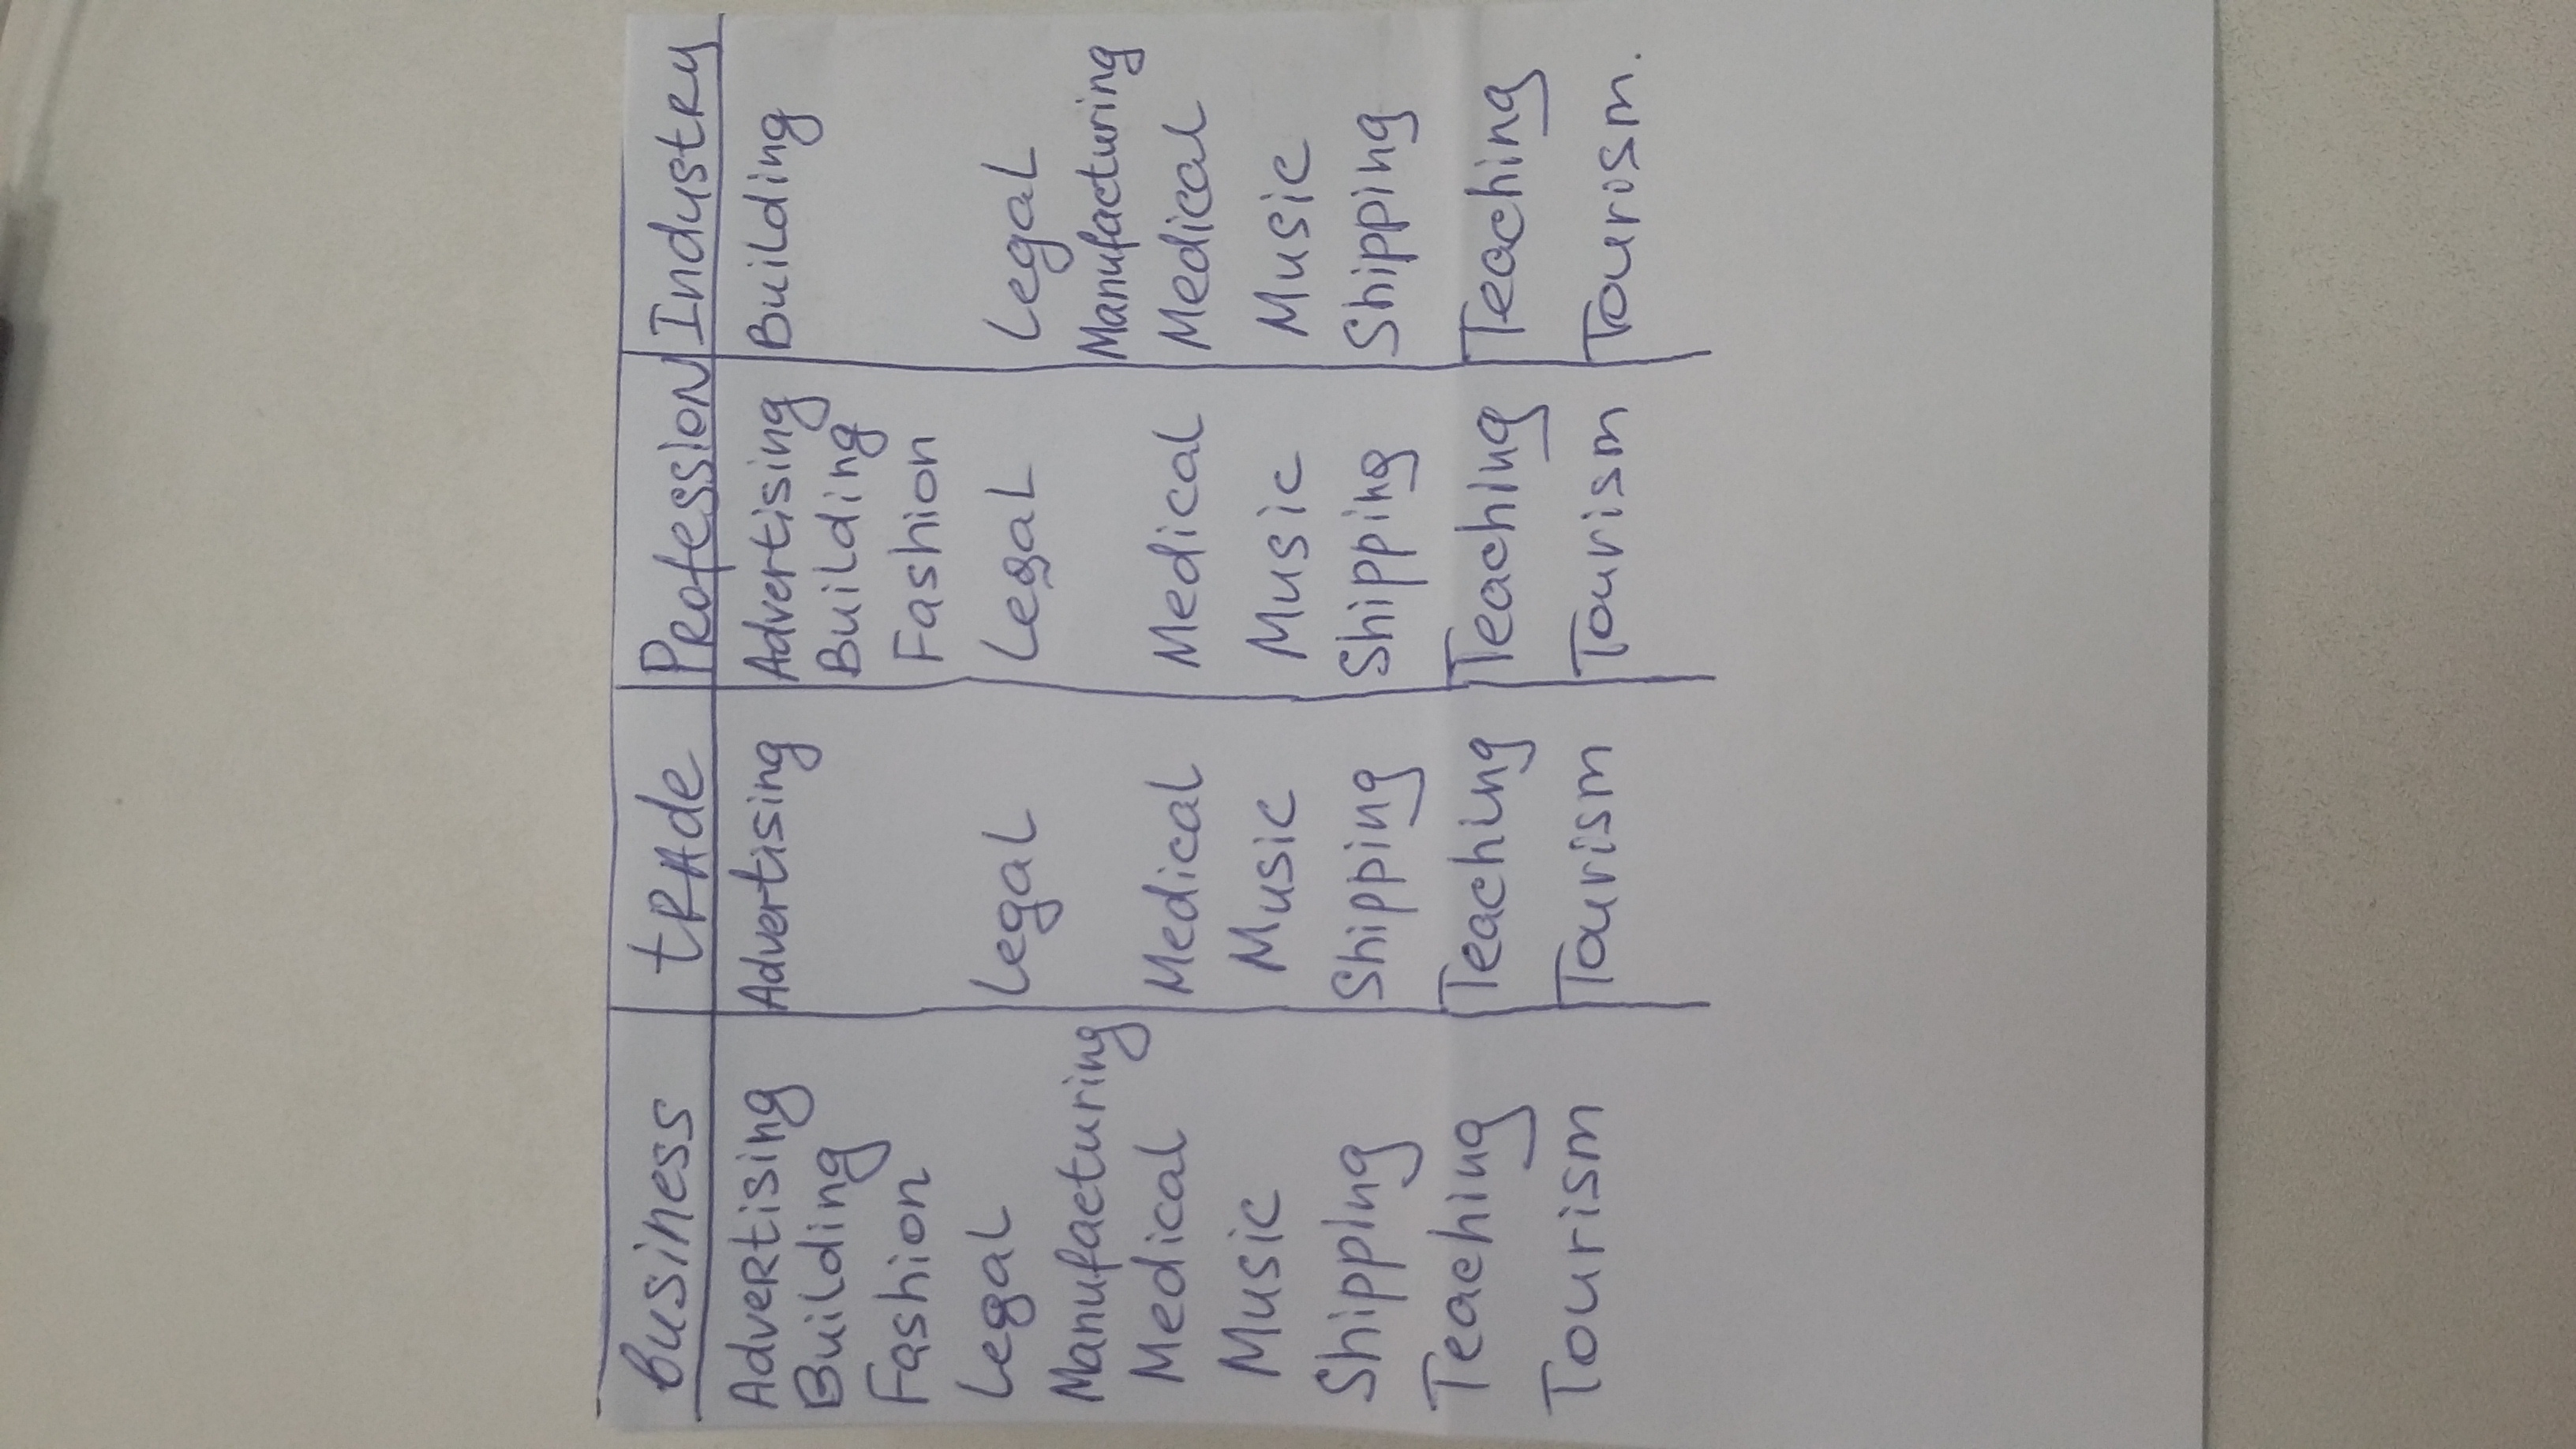 Business tRAde Profession Industry
Advertising Advertising Advertising Building
Building Building
Fashion Fashion
Legal Legal Legal Legal
Manufacturing Manufacturing
Medical Medical Medical Medical
Music Music Music Music
Shipping Shipping Shipping Shipping
Teaching Teaching Teaching Teaching
Tourism Tourism Tourism Tourism.